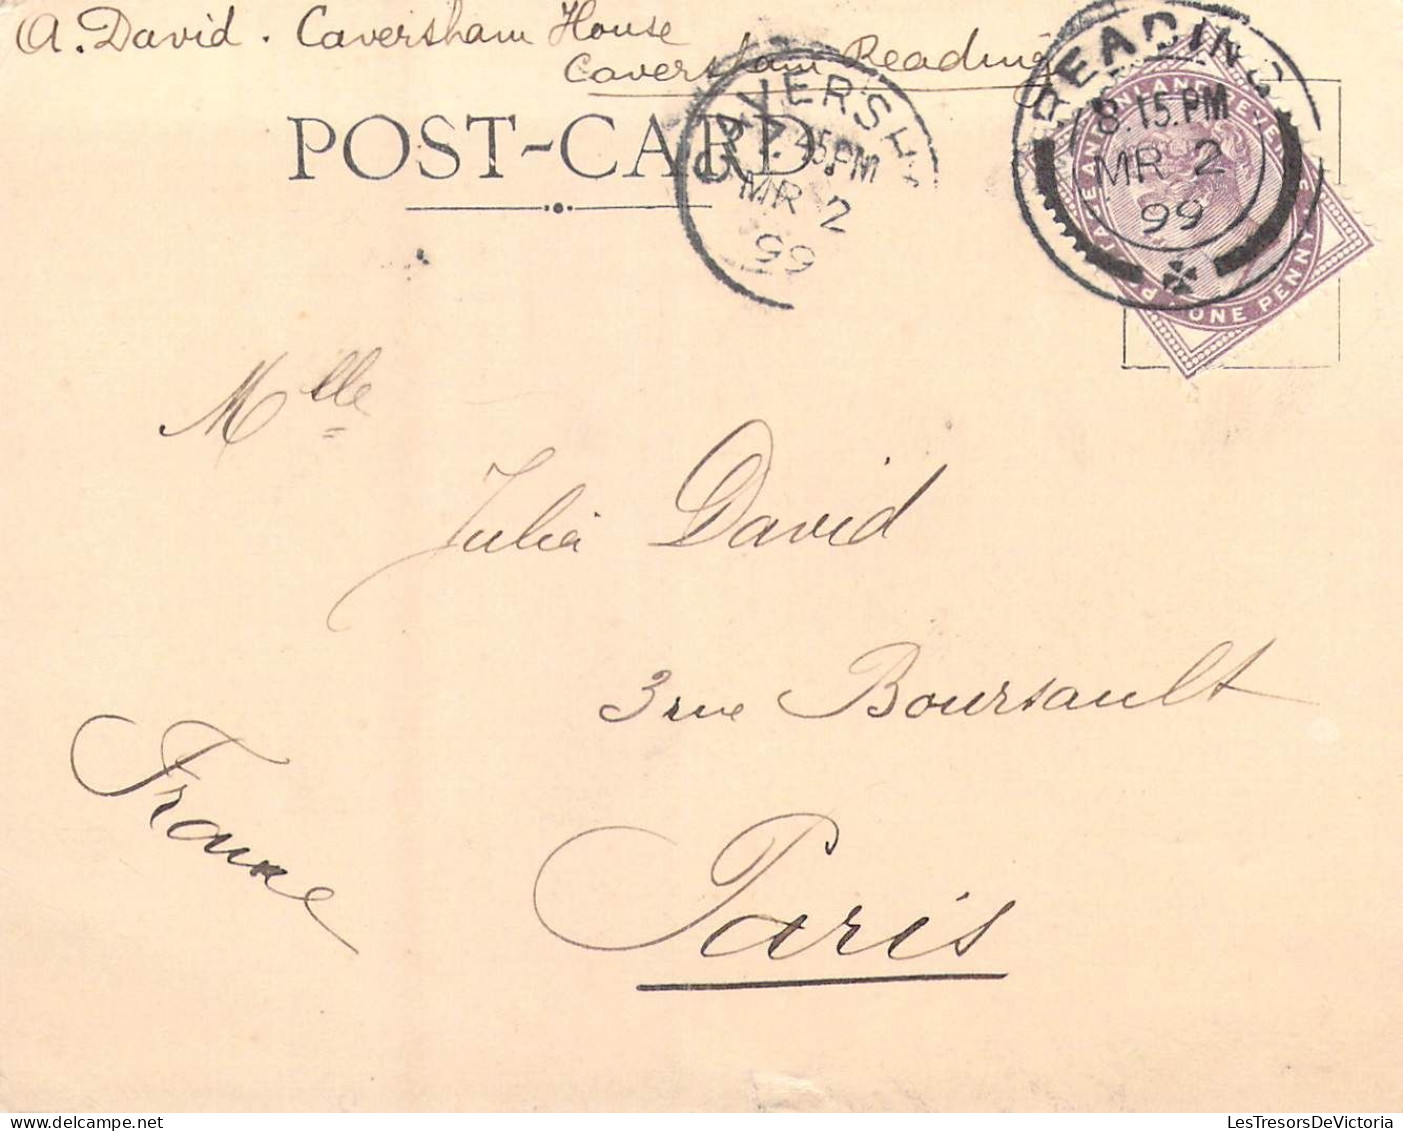 A. David. Caversham House
Caversham Reading
POST-CARD
CAVERSH
7.45PM
MR 2
99
READING
8.15.PM
MR 2
99
POSTAGE AND INLAND REVENUE
ONE PENNY
Mlle
Julia David
3 rue Boursault
Paris
France
LesTresorsDeVictoria.com